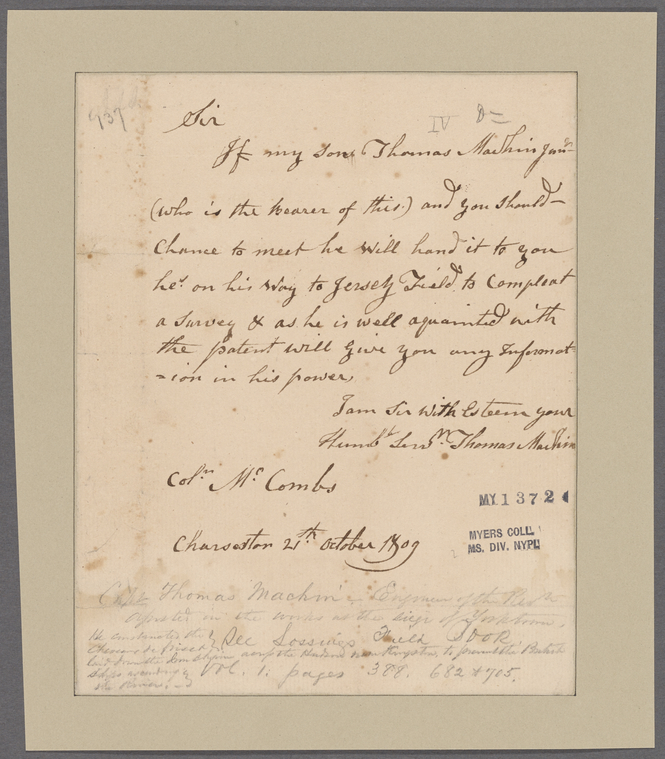 937
IV 8=
Sir
If my son Thomas Machin Junr
(who is the bearer of this.) and you should
Chance to meet he will hand it to you
he's on his Way to Jersey Field to Compleat
a Survey & as he is well aquainted with
the patent will Give you any Informat
=ion in his power.
I am Sir with Esteem your
Humbl Servt Thomas Machin
Coln Mc Combs
MY 1372
Charleston 21th October 1809
MYERS COLL.
MS. DIV. NYPL
Capt Thomas Machin Engineer of the
assisted in the works at the siege of Yorktown.
He constructed the
See Lossings Field Book
across the Hudson to prevent the British
ships
Vol. 1. pages 388. 682 & 705.
the River.